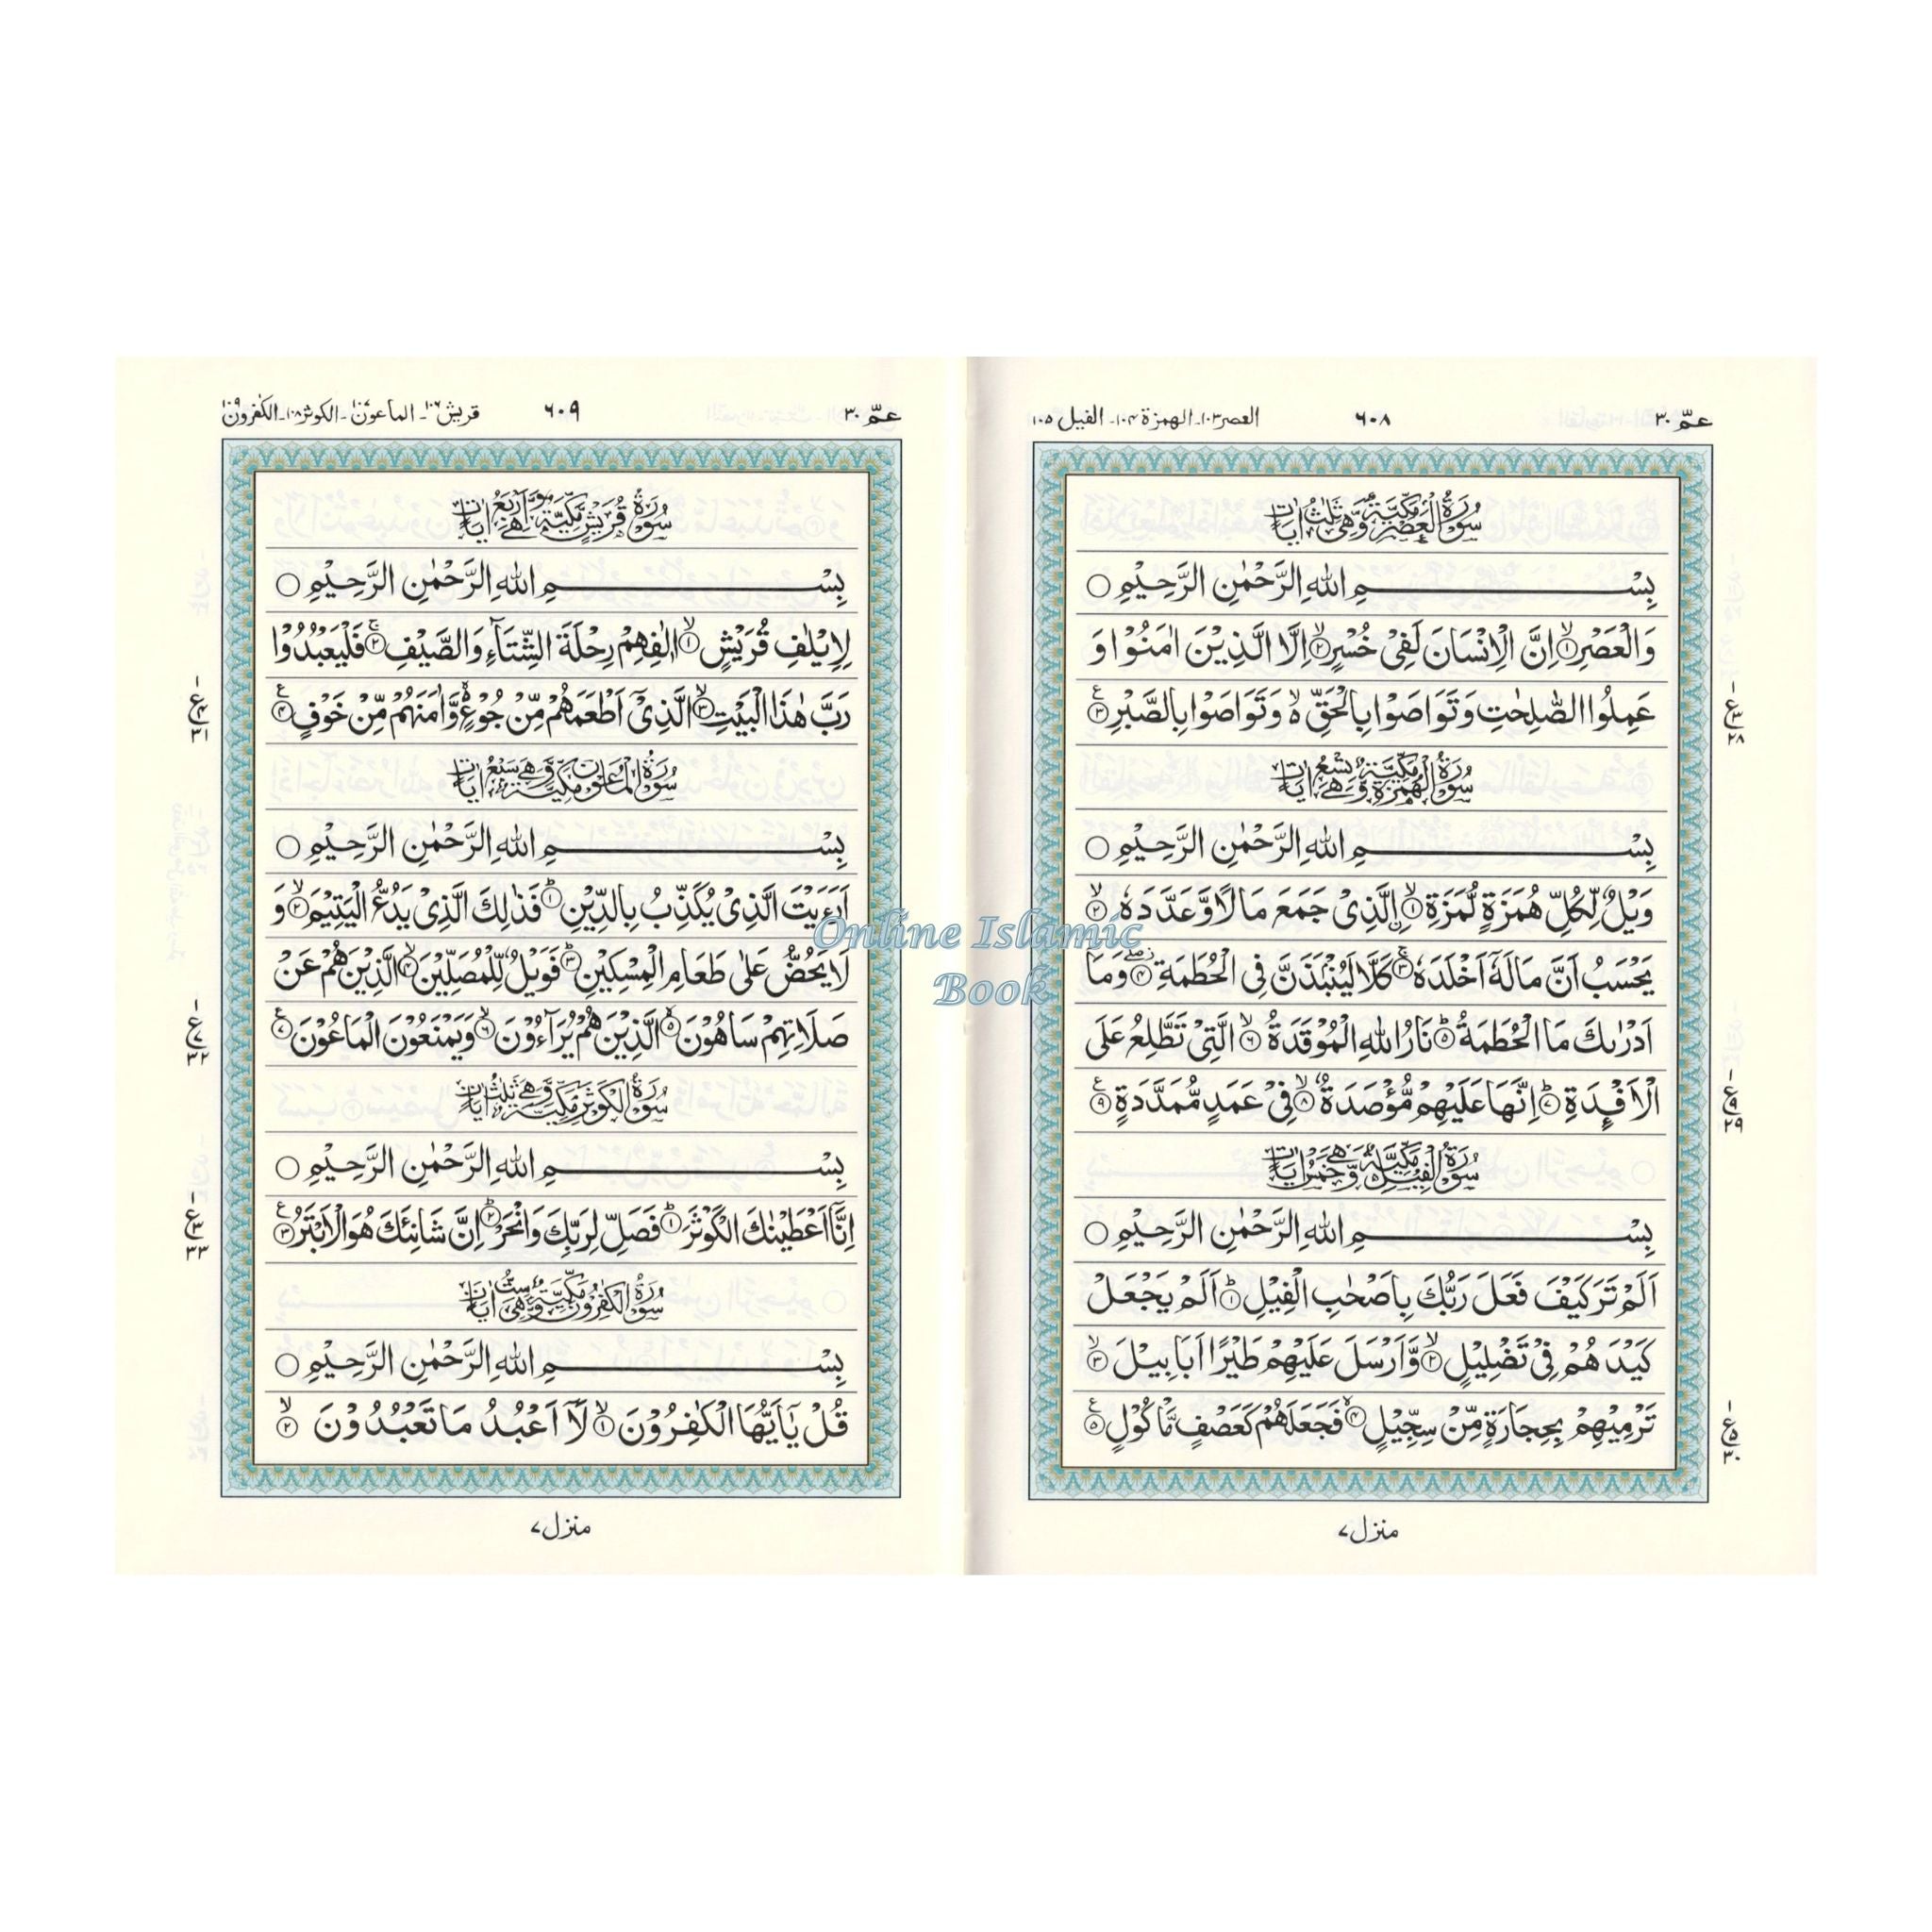 عـمّ ٣٠
٦٠٨
العصر ١٠٣ـ الهمزة ١٠٤ـ الفيل ١٠٥
سُوْرَةُ الْعَصْرِ مَكِّيَّةٌ وَّهِيَ ثَلٰثُ اٰيَاتٍ
بِسْـــــــــمِ اللّٰهِ الرَّحْمٰنِ الرَّحِيْمِ ○
وَالْعَصْرِۙ ١ اِنَّ الْاِنْسَانَ لَفِىْ خُسْرٍۙ ٢ اِلَّا الَّذِيْنَ اٰمَنُوْا وَ
عَمِلُوا الصّٰلِحٰتِ وَتَوَاصَوْا بِالْحَقِّ ۙ۬ وَتَوَاصَوْا بِالصَّبْرِ ٣ ع
سُوْرَةُ الْهُمَزَةِ مَكِّيَّةٌ وَّهِيَ تِسْعُ اٰيَاتٍ
بِسْـــــــــمِ اللّٰهِ الرَّحْمٰنِ الرَّحِيْمِ ○
وَيْلٌ لِّكُلِّ هُمَزَةٍ لُّمَزَةِۙ ١ ۨالَّذِىْ جَمَعَ مَالًا وَّعَدَّدَهٗۙ ٢
يَحْسَبُ اَنَّ مَالَهٗۤ اَخْلَدَهٗۚ ٣ كَلَّا لَيُنْۢبَذَنَّ فِى الْحُطَمَةِۖ ٤ وَمَاۤ
اَدْرٰىكَ مَا الْحُطَمَةُؕ ٥ نَارُ اللّٰهِ الْمُوْقَدَةُۙ ٦ الَّتِىْ تَطَّلِعُ عَلَى
الْاَفْـِٕدَةِؕ ٧ اِنَّهَا عَلَيْهِمْ مُّؤْصَدَةٌۙ ٨ فِىْ عَمَدٍ مُّمَدَّدَةٍ ٩ ع
سُوْرَةُ الْفِيْلِ مَكِّيَّةٌ وَّهِيَ خَمْسُ اٰيَاتٍ
بِسْـــــــــمِ اللّٰهِ الرَّحْمٰنِ الرَّحِيْمِ ○
اَلَمْ تَرَ كَيْفَ فَعَلَ رَبُّكَ بِاَصْحٰبِ الْفِيْلِؕ ١ اَلَمْ يَجْعَلْ
كَيْدَهُمْ فِىْ تَضْلِيْلٍۙ ٢ وَّاَرْسَلَ عَلَيْهِمْ طَيْرًا اَبَابِيْلَۙ ٣
تَرْمِيْهِمْ بِحِجَارَةٍ مِّنْ سِجِّيْلٍۙ ٤ فَجَعَلَهُمْ كَعَصْفٍ مَّاْكُوْلٍ ٥ ع
٣ ع ٢٨
٩ ع ٢٩
٥ ع ٣٠
منزل ٧
عـمّ ٣٠
٦٠٩
قريش ١٠٦ـ الماعون ١٠٧ـ الكوثر ١٠٨ـ الكٰفرون ١٠٩
سُوْرَةُ قُرَيْشٍ مَكِّيَّةٌ وَّهِيَ اَرْبَعُ اٰيَاتٍ
بِسْـــــــــمِ اللّٰهِ الرَّحْمٰنِ الرَّحِيْمِ ○
لِاِيْلٰفِ قُرَيْشٍۙ ١ اٖلٰفِهِمْ رِحْلَةَ الشِّتَآءِ وَالصَّيْفِۚ ٢ فَلْيَعْبُدُوْا
رَبَّ هٰذَا الْبَيْتِۙ ٣ الَّذِىْۤ اَطْعَمَهُمْ مِّنْ جُوْعٍ ۙ۬ وَّاٰمَنَهُمْ مِّنْ خَوْفٍ ٤ ع
سُوْرَةُ الْمَاعُوْنِ مَكِّيَّةٌ وَّهِيَ سَبْعُ اٰيَاتٍ
بِسْـــــــــمِ اللّٰهِ الرَّحْمٰنِ الرَّحِيْمِ ○
اَرَءَيْتَ الَّذِىْ يُكَذِّبُ بِالدِّيْنِؕ ١ فَذٰلِكَ الَّذِىْ يَدُعُّ الْيَتِيْمَۙ ٢ وَ
لَا يَحُضُّ عَلٰى طَعَامِ الْمِسْكِيْنِؕ ٣ فَوَيْلٌ لِّلْمُصَلِّيْنَۙ ٤ الَّذِيْنَ هُمْ عَنْ
صَلَاتِهِمْ سَاهُوْنَۙ ٥ الَّذِيْنَ هُمْ يُرَآءُوْنَۙ ٦ وَيَمْنَعُوْنَ الْمَاعُوْنَ ٧ ع
سُوْرَةُ الْكَوْثَرِ مَكِّيَّةٌ وَّهِيَ ثَلٰثُ اٰيَاتٍ
بِسْـــــــــمِ اللّٰهِ الرَّحْمٰنِ الرَّحِيْمِ ○
اِنَّاۤ اَعْطَيْنٰكَ الْكَوْثَرَؕ ١ فَصَلِّ لِرَبِّكَ وَانْحَرْؕ ٢ اِنَّ شَانِئَكَ هُوَ الْاَبْتَرُ ٣ ع
سُوْرَةُ الْكٰفِرُوْنَ مَكِّيَّةٌ وَّهِيَ سِتُّ اٰيَاتٍ
بِسْـــــــــمِ اللّٰهِ الرَّحْمٰنِ الرَّحِيْمِ ○
قُلْ يٰۤاَيُّهَا الْكٰفِرُوْنَۙ ١ لَاۤ اَعْبُدُ مَا تَعْبُدُوْنَۙ ٢
٤ ع ٣١
٧ ع ٣٢
٣ ع ٣٣
منزل ٧
Online Islamic
Book